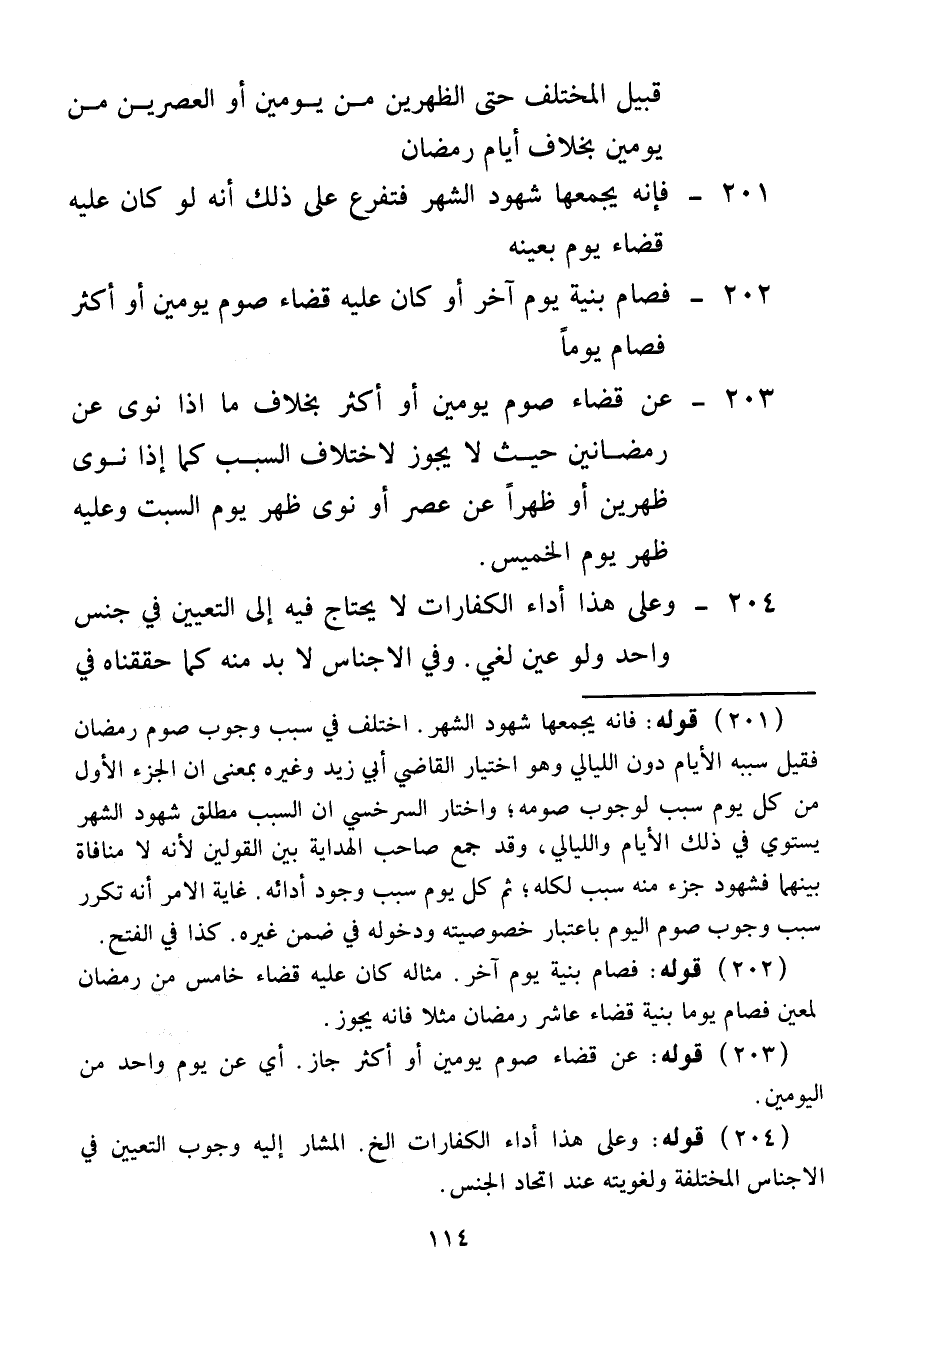 قبيل المختلف حتى الظهرين من يومين أو العصرين من
يومين بخلاف أيام رمضان
٢٠١ ـ فإنه يجمعها شهود الشهر فتفرع على ذلك أنه لو كان عليه
قضاء يوم بعينه
٢٠٢ ـ فصام بنية يوم آخر أو كان عليه قضاء صوم يومين أو أكثر
فصام يوماً
٢٠٣ ـ عن قضاء صوم يومين أو أكثر بخلاف ما اذا نوى عن
رمضانين حيث لا يجوز لاختلاف السبب كما إذا نوى
ظهرين أو ظهراً عن عصر أو نوى ظهر يوم السبت وعليه
ظهر يوم الخميس.
٢٠٤ ـ وعلى هذا أداء الكفارات لا يحتاج فيه إلى التعيين في جنس
واحد ولو عين لغي. وفي الاجناس لا بد منه كما حققناه في
(٢٠١) قوله: فانه يجمعها شهود الشهر. اختلف في سبب وجوب صوم رمضان
فقيل سببه الأيام دون الليالي وهو اختيار القاضي أبي زيد وغيره بمعنى ان الجزء الأول
من كل يوم سبب لوجوب صومه؛ واختار السرخسي ان السبب مطلق شهود الشهر
يستوي في ذلك الأيام والليالي، وقد جمع صاحب الهداية بين القولين لأنه لا منافاة
بينهما فشهود جزء منه سبب لكله؛ ثم كل يوم سبب وجود أدائه. غاية الامر أنه تكرر
سبب وجوب صوم اليوم باعتبار خصوصيته ودخوله في ضمن غيره. كذا في الفتح.
(٢٠٢) قوله: فصام بنية يوم آخر. مثاله كان عليه قضاء خامس من رمضان
لمعين فصام يوما بنية قضاء عاشر رمضان مثلا فانه يجوز.
(٢٠٣) قوله: عن قضاء صوم يومين أو أكثر جاز. أي عن يوم واحد من
اليومين.
(٢٠٤) قوله: وعلى هذا أداء الكفارات الخ. المشار إليه وجوب التعيين في
الاجناس المختلفة ولغويته عند اتحاد الجنس.
١١٤